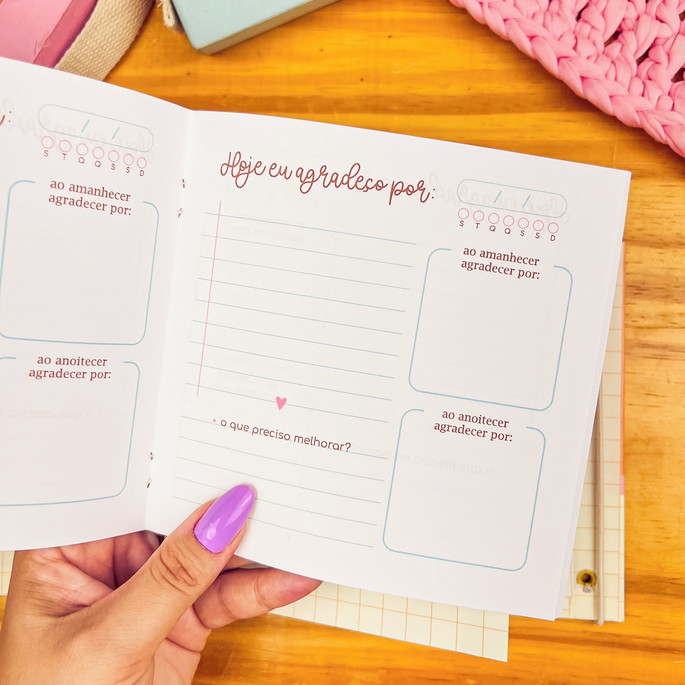 / /
S T Q Q S S D
ao amanhecer
agradecer por:
ao anoitecer
agradecer por:
Hoje eu agradeço por:
o que preciso melhorar?
/ /
S T Q Q S S D
ao amanhecer
agradecer por:
ao anoitecer
agradecer por: